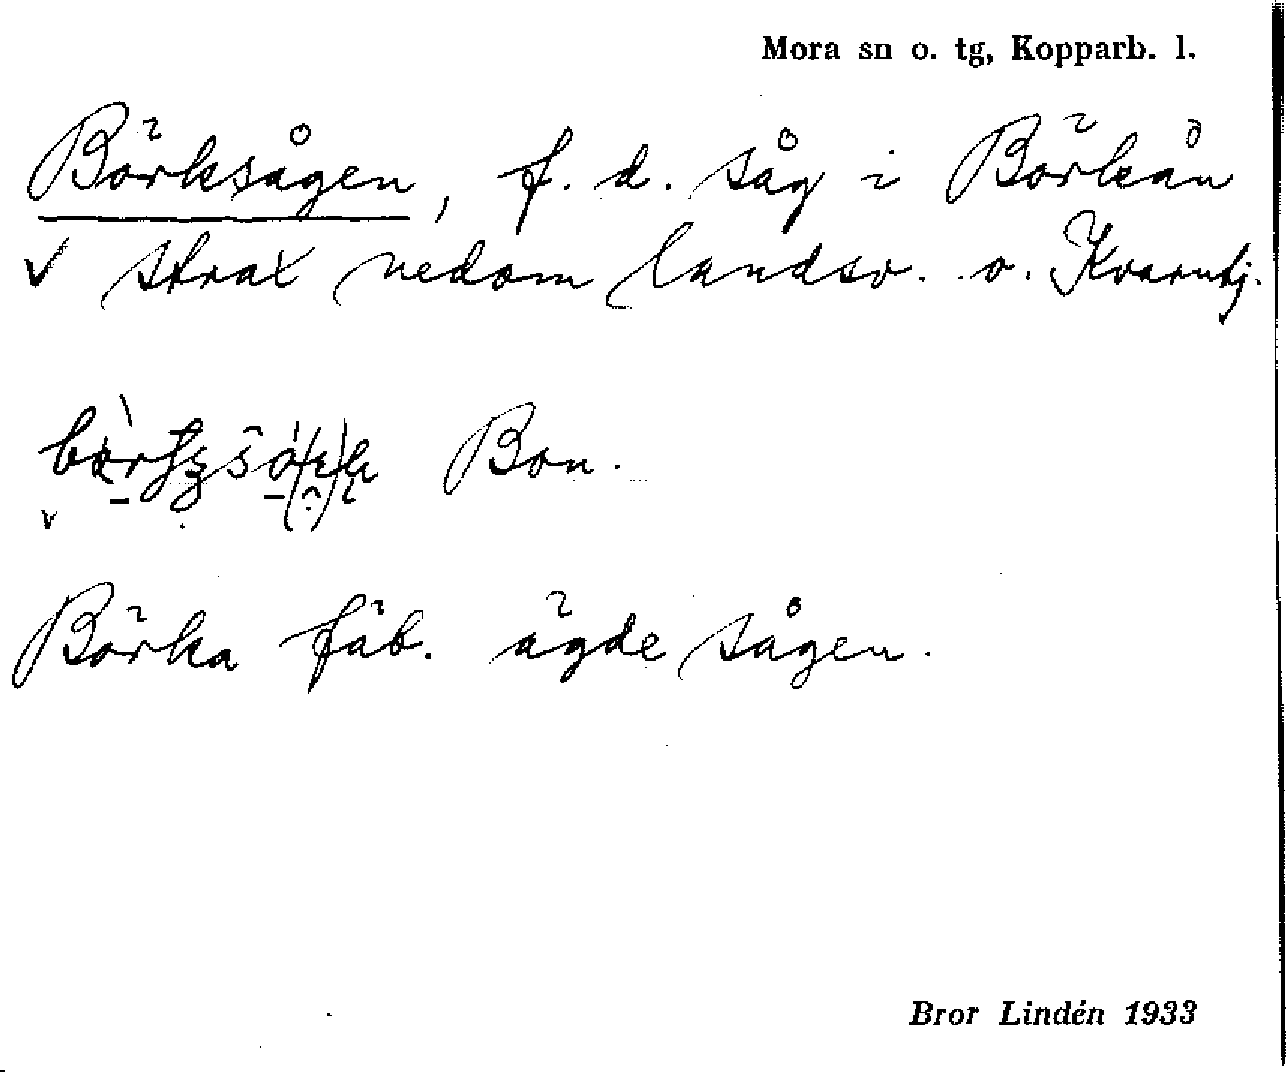 Mora sn o. tg, Kopparb. l.
Börksågen, f. d. såg i Börkån
strax nedom landsv. o. Kvarntj.
Bon.
Börka fäb. ägde sågen.
Bror Lindén 1933